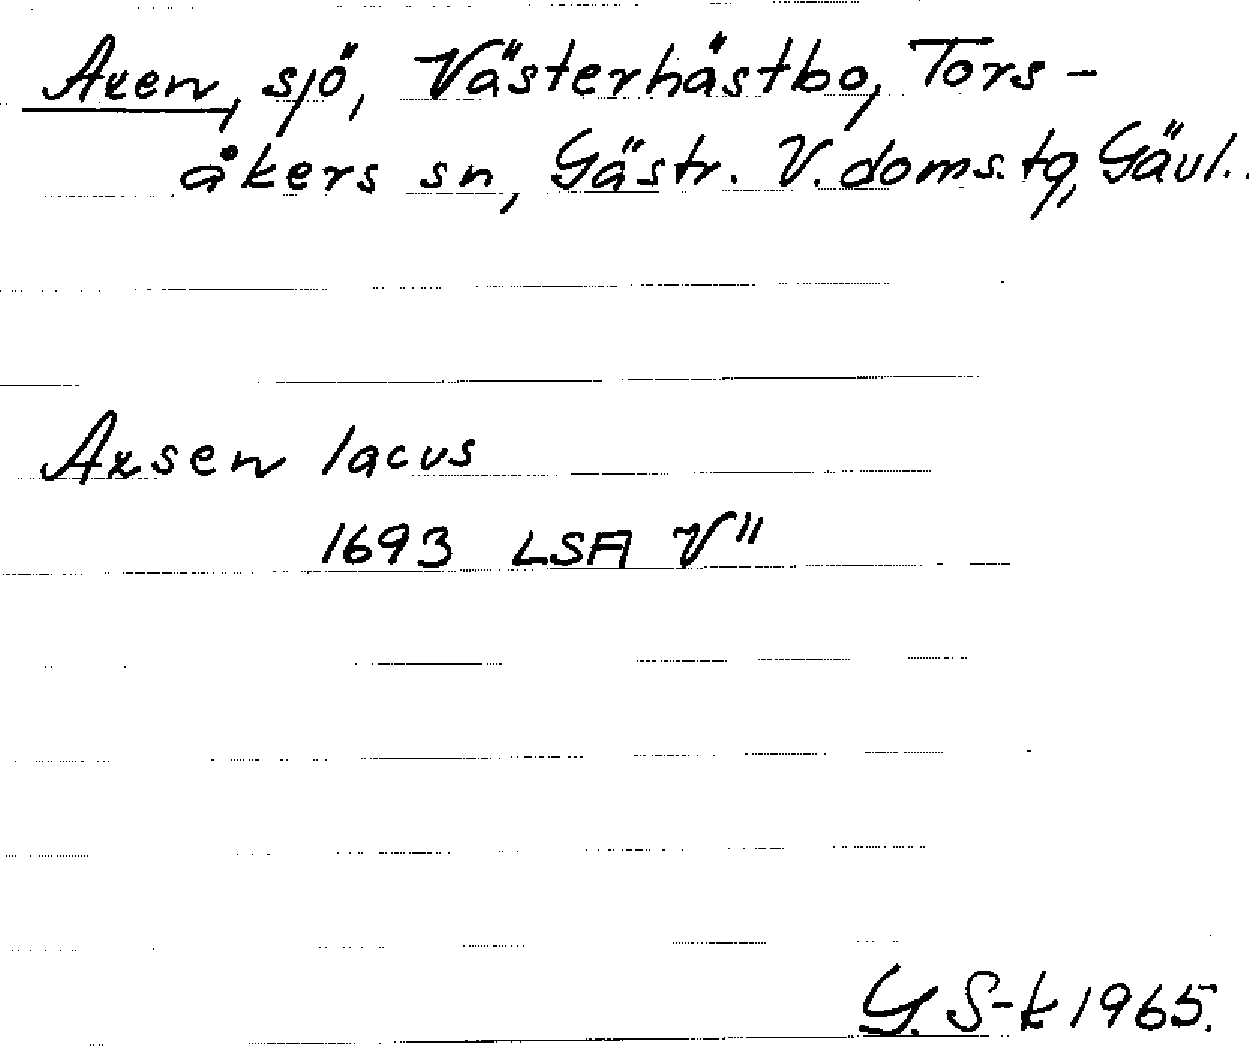 Axen, sjö, Västerhästbo, Tors-
åkers sn, Gästr. V. doms. tg, Gävl.
Axsen lacus
1693 LSA V"
G. S-k 1965.